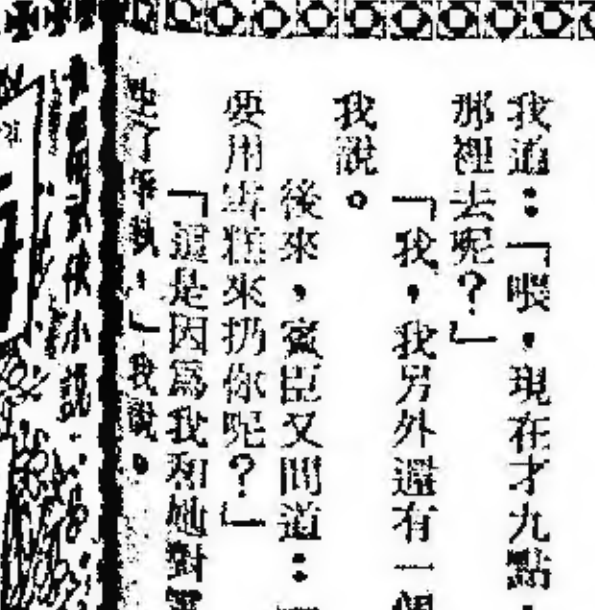 我道：「喂，現在才九點，
那裡去呢？」
「我，我另外還有一個
我說。
後來，賓臣又問道：「
要用雪糕來扔你呢？」
「這是因為我和她對
了爭執，」我說。
武俠小說